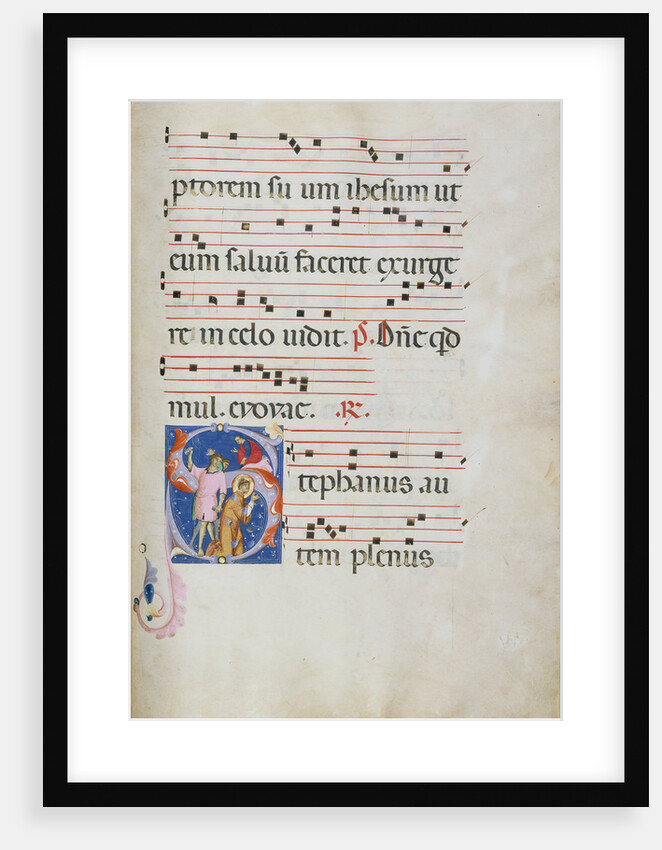 ptorem su um ihesum ut
eum saluū faceret exurge
re in celo uidit. P. Dñe qd
mul. evovac. R.
tephanus au
tem plenus